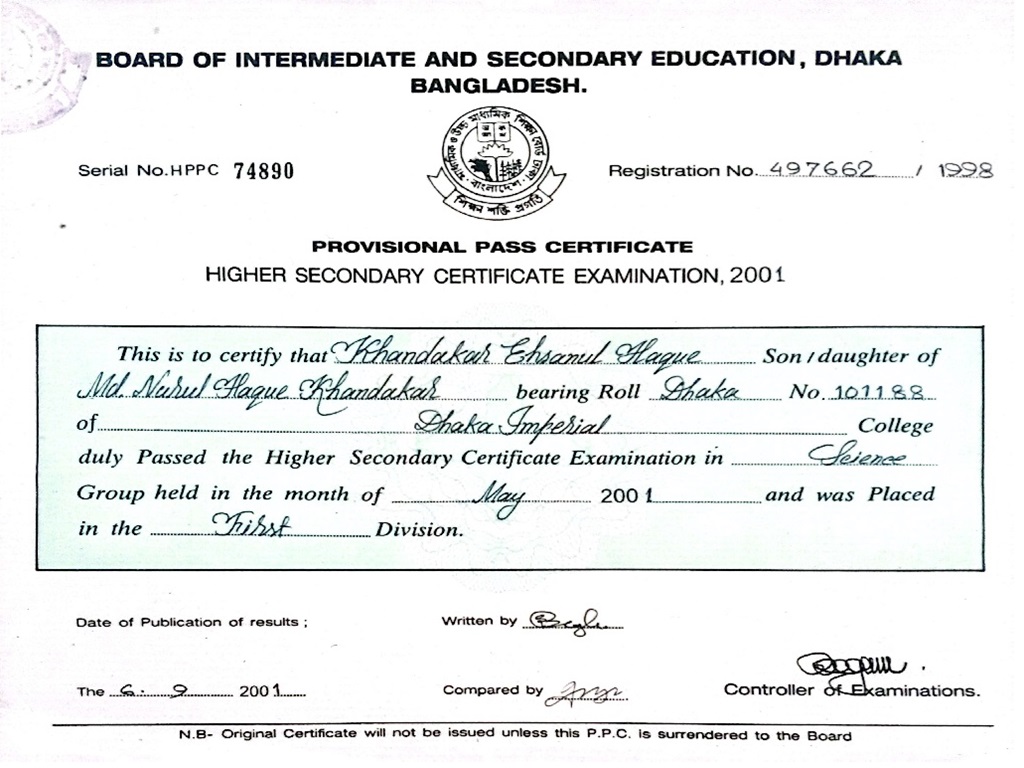 BOARD OF INTERMEDIATE AND SECONDARY EDUCATION, DHAKA
BANGLADESH.
মাধ্যমিক ও উচ্চ মাধ্যমিক শিক্ষা বোর্ড ঢাকা
বাংলাদেশ
Serial No.HPPC 74890
Registration No. 497662 / 1998
PROVISIONAL PASS CERTIFICATE
HIGHER SECONDARY CERTIFICATE EXAMINATION, 2001
This is to certify that Khandakar Ehsanul Haque Son/daughter of
Md. Nurul Haque Khandakar bearing Roll Dhaka No. 101188
of Dhaka Imperial College
duly Passed the Higher Secondary Certificate Examination in Science
Group held in the month of May 2001 and was Placed
in the First Division.
Date of Publication of results ;
Written by
The 6. 9 2001
Compared by
Controller of Examinations.
N.B- Original Certificate will not be issued unless this P.P.C. is surrendered to the Board